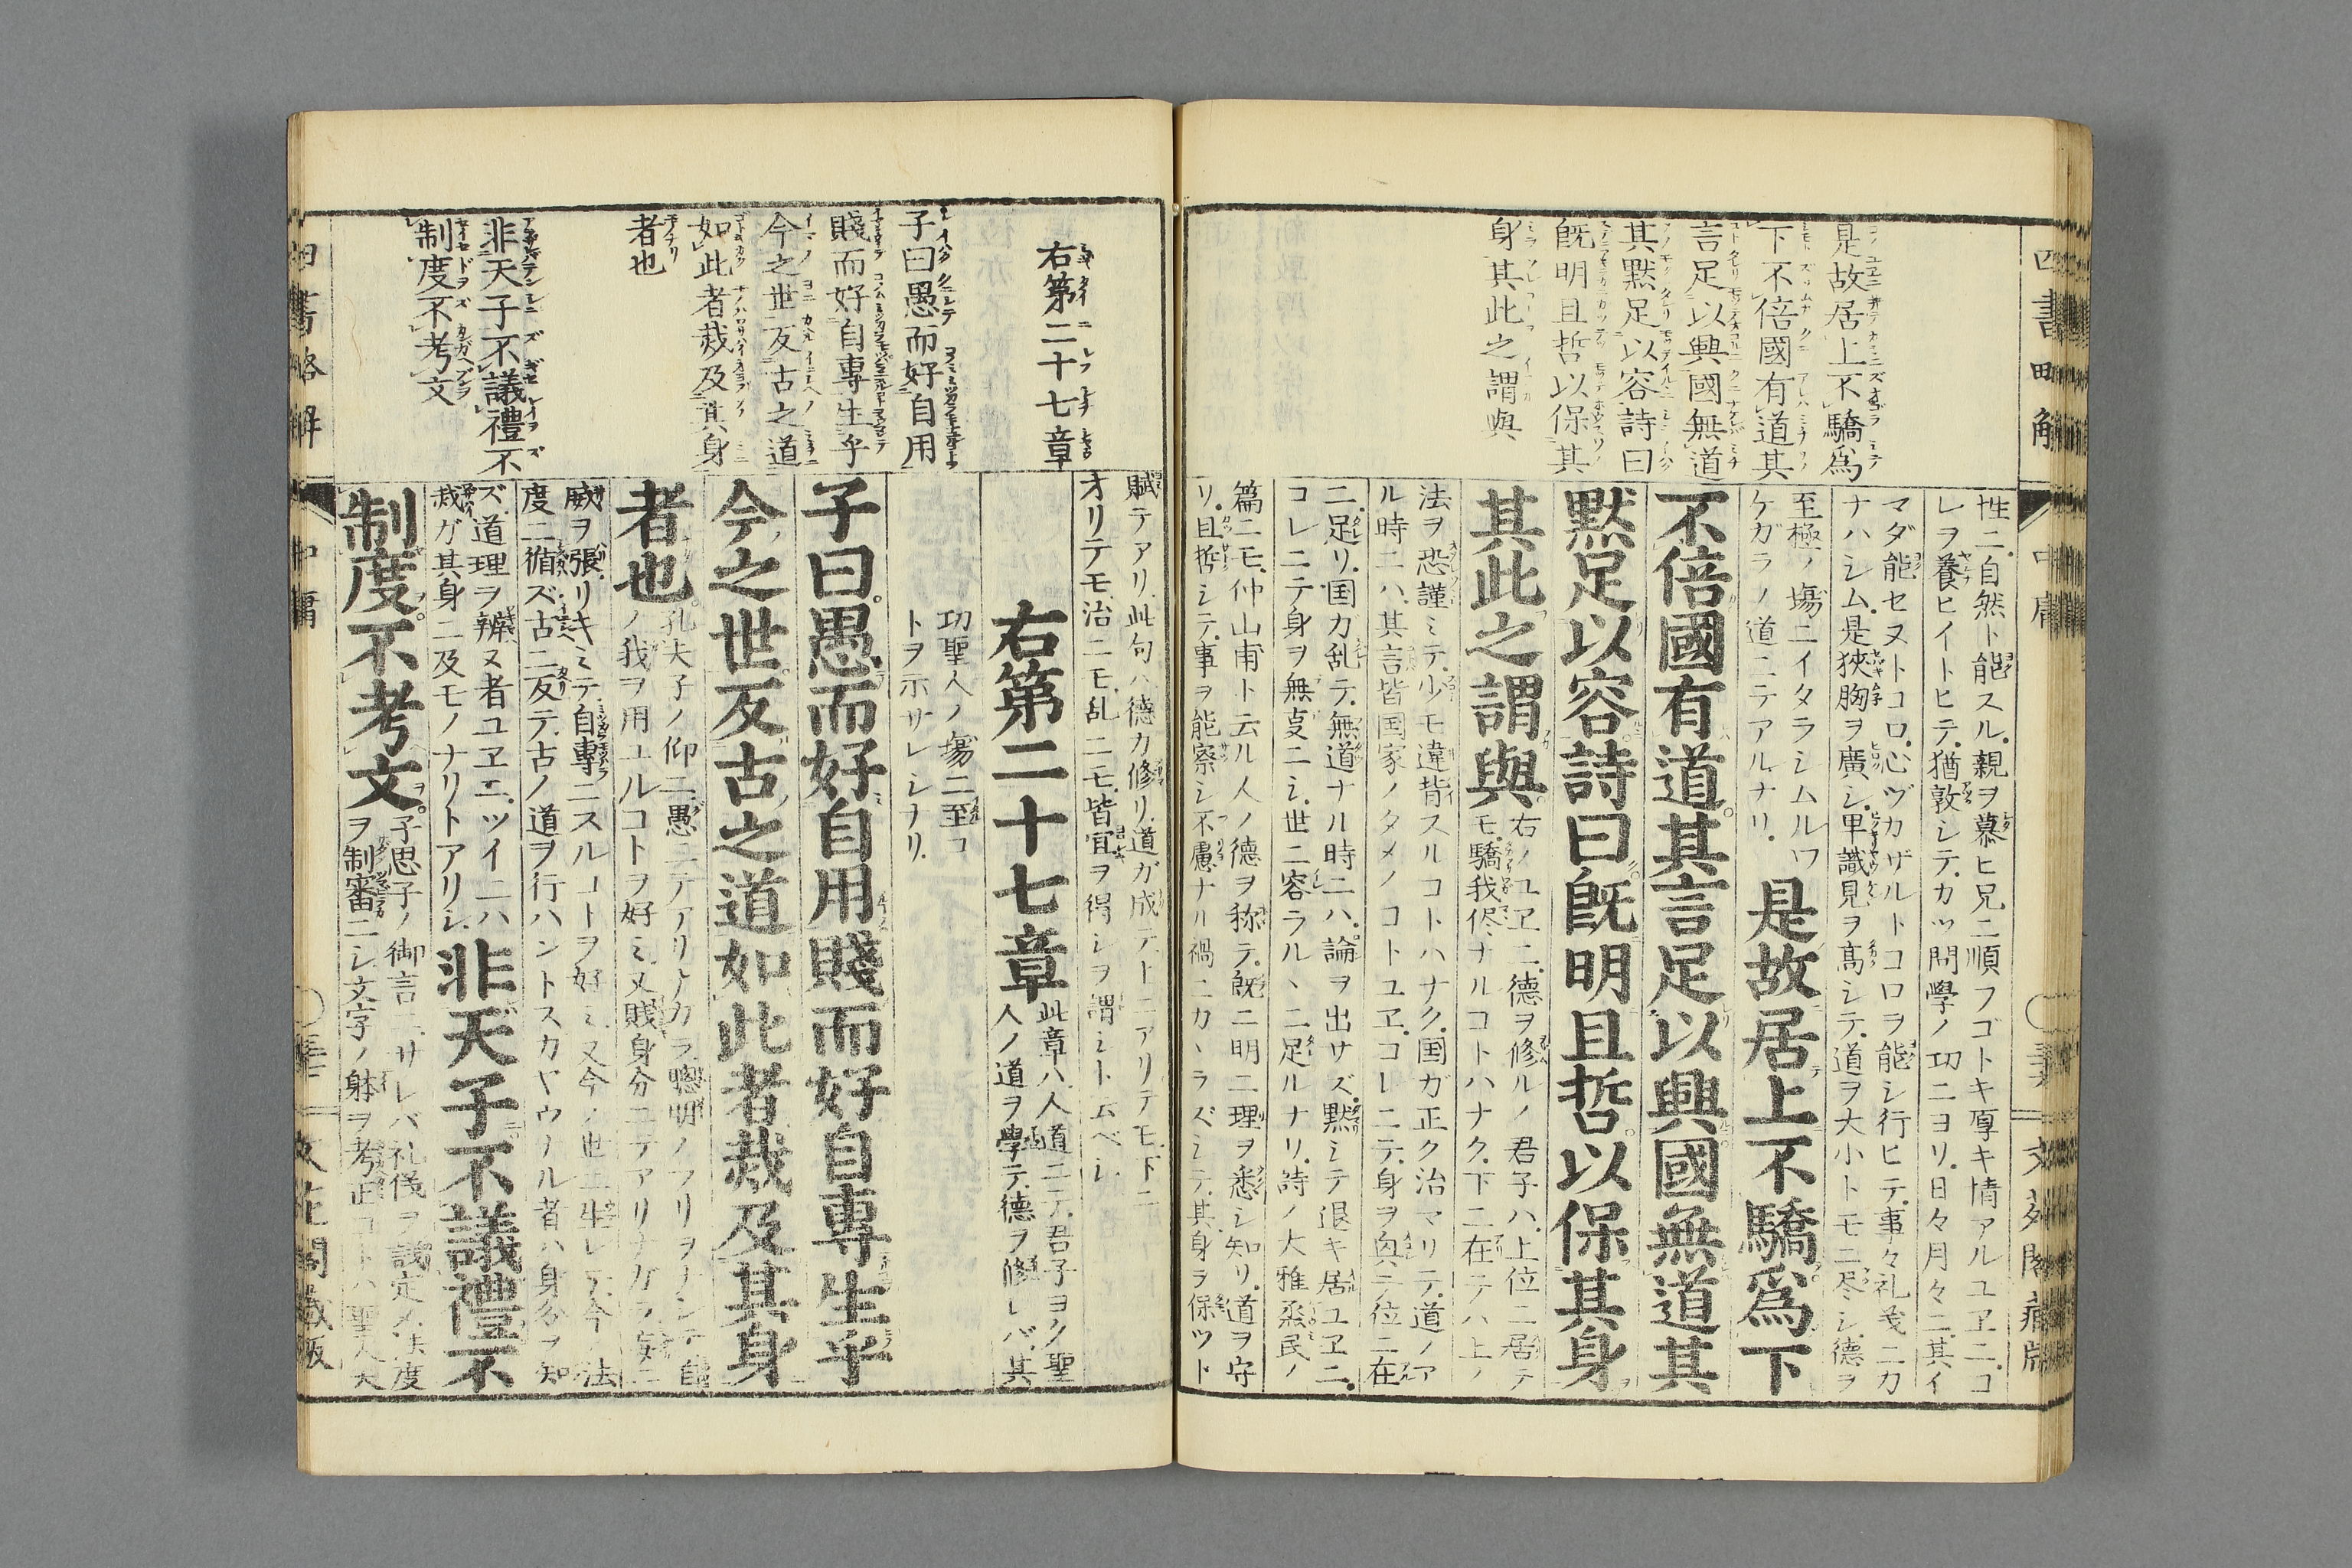 四書略解
中庸
是故居上不驕爲
下不倍國有道其
言足以興國無道
其默足以容詩曰
既明且哲以保其
身其此之謂與
性ニ自然ト能スル親ヲ慕ヒ兄ニ順フゴトキ厚キ情アルユヱニコ
レヲ養ヒイトヒテ猶敦シテカツ問學ノ功ニヨリ日々月々ニ其イ
マダ能セヌトコロ心ヅカザルトコロヲ能シ行ヒテ事々礼義ニカ
ナハシム是狹胸ヲ廣シ卑識見ヲ高シテ道ヲ大小トモニ尽シ德ヲ
至極ノ塲ニイタラシムルワ
ケガラノ道ニテアルナリ
是故居上不驕爲下
不倍國有道其言足以興國無道其
默足以容詩曰既明且哲以保其身
其此之謂與
右ノユヱニ德ヲ修ルノ君子ハ上位ニ居テ
モ驕我侭ナルコトハナク下ニ在テハ上ノ
法ヲ恐謹ミテ少モ違背スルコトハナク国ガ正ク治マリテ道ノア
ル時ニハ其言皆国家ノタメノコトユヱコレニテ身ヲ興テ位ニ在
ニ足リ国カ乱テ無道ナル時ニハ論ヲ出サズ默シテ退キ居ユヱニ
コレニテ身ヲ無事ニシ世ニ容ラルヽニ足ルナリ詩ノ大雅烝民ノ
篇ニモ仲山甫ト云ル人ノ德ヲ称テ既ニ明ニ理ヲ悉シ知リ道ヲ守
リ且哲シテ事ヲ能察シ不慮ナル禍ニカヽラズシテ其身ヲ保ツト
右第二十七章
子曰愚而好自用
賤而好自專生乎
今之世反古之道
如此者烖及其身
者也
非天子不議禮不
制度不考文
賦テアリ此句ハ德カ修リ道ガ成テトニアリテモ下ニ
オリテモ治ニモ乱ニモ皆宜ヲ得シヲ謂シトムベシ
右第二十七章
此章ハ人道ニテ君子ヨク聖
人ノ道ヲ學テ德ヲ修レバ其
功聖人ノ塲ニ至コ
トヲ示サレシナリ
子曰愚而好自用賤而好自專生乎
今之世反古之道如此者烖及其身
者也
孔夫子ノ仰ニ愚ニテアリナカラ聰明ノフリヲナシテ自
ノ我ヲ用ユルコトヲ好ミ又賤身分ニテアリナガラ妄ニ
威ヲ張リキミテ自專ニスルコトヲ好ミ又今ノ世ニ生レテ今ノ法
度ニ循ズ古ニ反テ古ノ道ヲ行ハントスカヤウノル者ハ身分ヲ知
ズ道理ヲ辨ヌ者ユヱニツイニハ
烖ガ其身ニ及モノナリトアリシ
非天子不議禮不
制度不考文
子思子ノ御言ニサレバ礼儀ヲ議定メ法度
ヲ制審ニシ文字ノ躰ヲ考正コトハ聖人天
四書略解
中庸
文花閣藏版